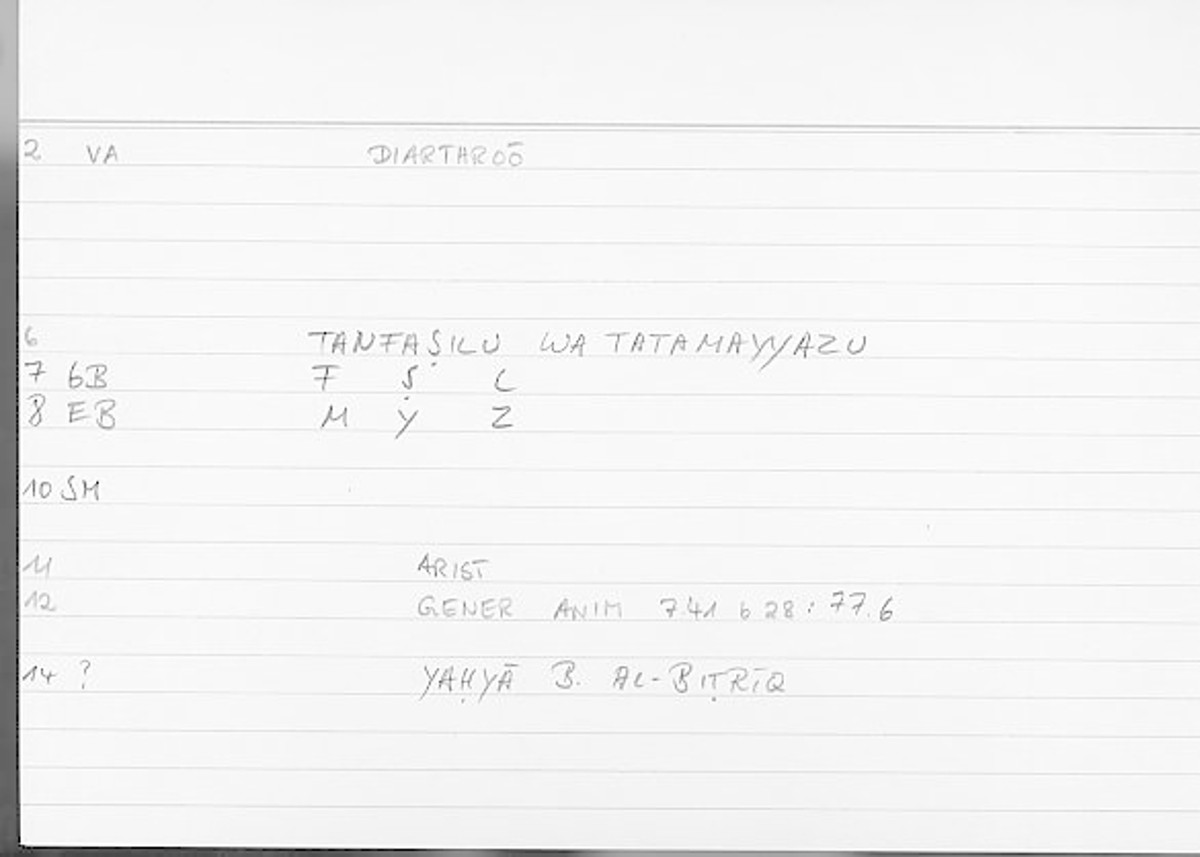 2 VA DIARTHROŌ
6 TANFAṢILU WA TATAMAYYAZU
7 6B F Ṣ L
8 EB M Y Z
10 SM
11 ARIST
12 GENER ANIM 741 b 28 : 77.6
14 ? YAḤYĀ B. AL-BIṬRĪQ